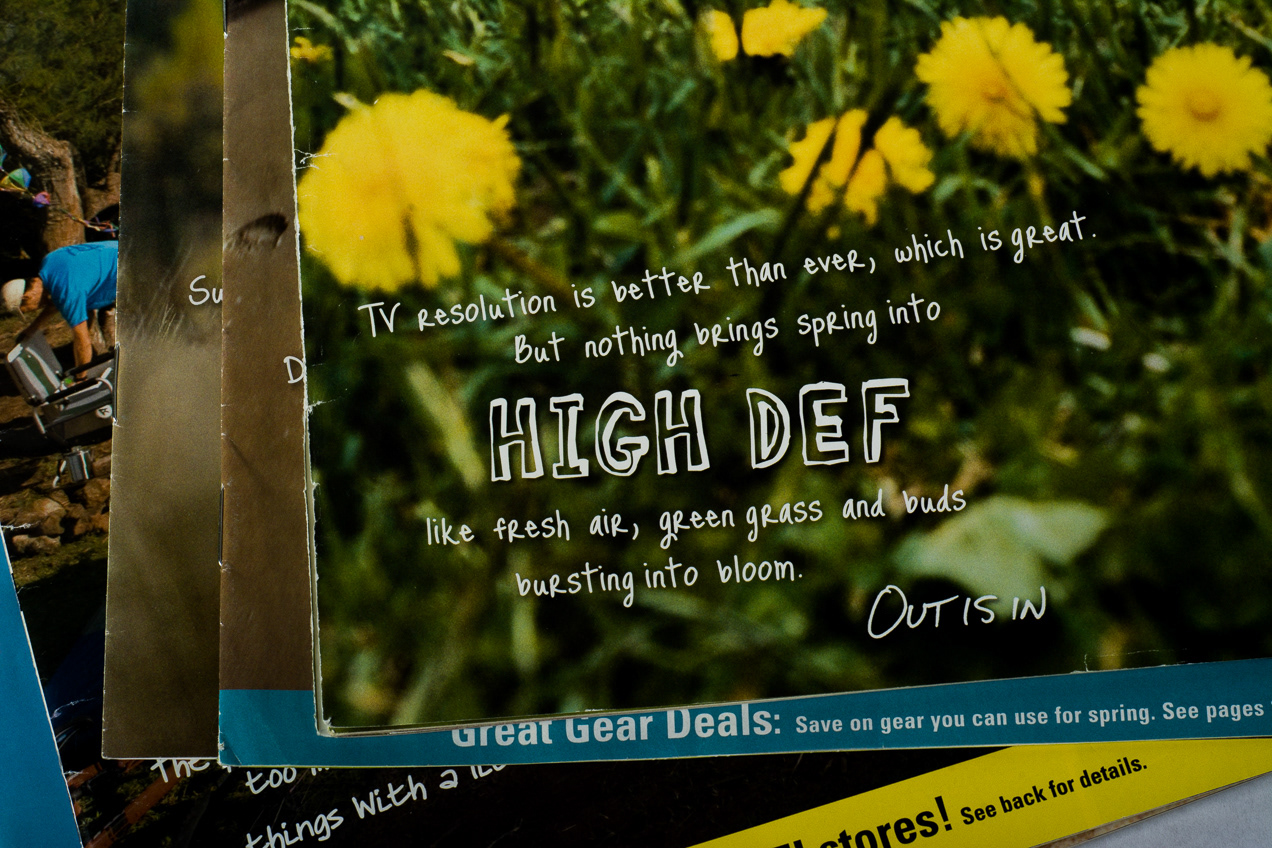 TV resolution is better than ever, which is great.
But nothing brings spring into
HIGH DEF
like fresh air, green grass and buds
bursting into bloom.
OUT IS IN
Su
D
Great Gear Deals: Save on gear you can use for spring. See pages
the
too
things with a
stores! See back for details.